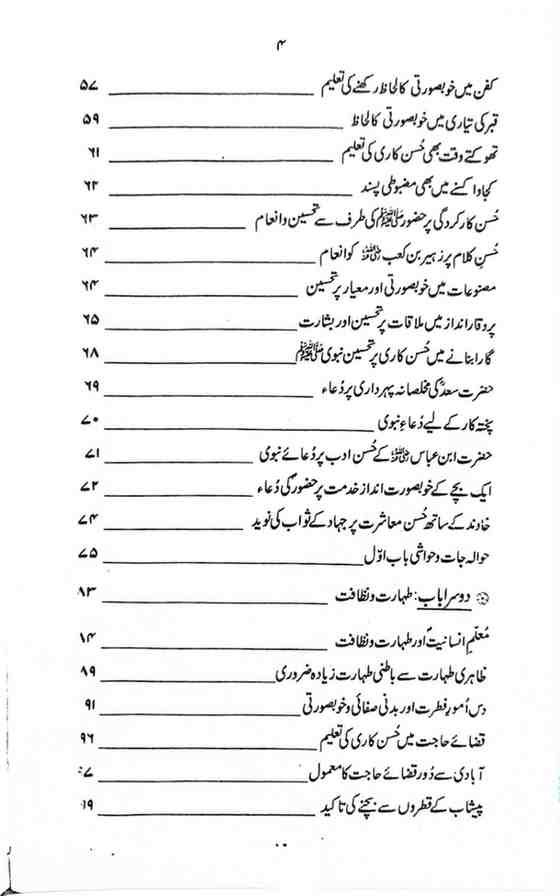 ۴
کفن میں خوبصورتی کا لحاظ رکھنے کی تعلیم ۵۷
قبر کی تیاری میں خوبصورتی کا لحاظ ۵۹
تھوکتے وقت بھی حُسن کاری کی تعلیم ۶۱
کجاوا کسنے میں بھی مضبوطی پسند ۶۲
حُسن کارکردگی پر حضور ﷺ کی طرف سے تحسین و انعام ۶۳
حُسنِ کلام پر زہیر بن کعب ﷺ کو انعام ۶۴
مصنوعات میں خوبصورتی اور معیار پر تحسین ۶۴
پروقار انداز میں ملاقات پر تحسین اور بشارت ۶۵
گارا بنانے میں حُسن کاری پر تحسین نبوی ﷺ ۶۸
حضرت سعدؓ کی مخلصانہ پہرداری پر دُعاء ۶۹
پختہ کار کے لیے دُعاءِ نبوی ۷۰
حضرت ابن عباس ﷺ کے حُسن ادب پر دُعائے نبوی ۷۱
ایک بچے کے خوبصورت انداز خدمت پر حضورؐ کی دُعاء ۷۲
خاوند کے ساتھ حُسن معاشرت پر جہاد کے ثواب کی نوید ۷۴
حوالہ جات و حواشی باب اوّل ۷۵
دوسرا باب: طہارت و نظافت ۸۳
مُعلّمِ انسانیتؐ اور طہارت و نظافت ۸۴
ظاہری طہارت سے باطنی طہارت زیادہ ضروری ۸۹
دس اُمورِ فطرت اور بدنی صفائی و خوبصورتی ۹۱
قضائے حاجت میں حُسن کاری کی تعلیم ۹۶
آبادی سے دُور قضائے حاجت کا معمول ۷
پیشاب کے قطروں سے بچنے کی تاکید ۹